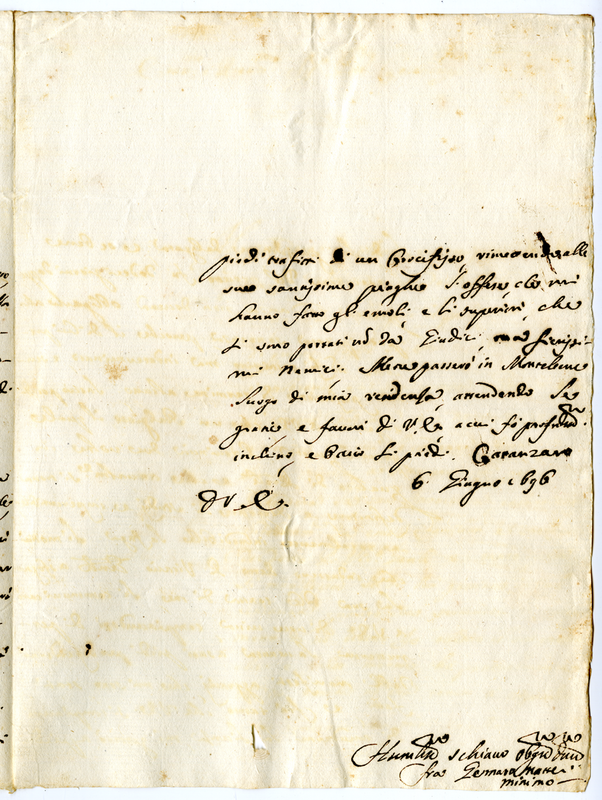 piedi trafitti di un Crocifisso, rimettendo alle
sue santissime pieghe l'offese che mi
hanno fatto gli emoli e li superiori, che
si sono portati nō da Giudici, ma fierissi-
mi Nemici. Me ne passerò in Montelione
luogo di mia residenza, attendendo le
grazie e favori di V. E. a cui fò profond.
inchino, e bacio li piedi. Catanzaro
6 Giugno 1696
D V. E.
Humiliss schiavo oblig
fra Gennaro
minimo